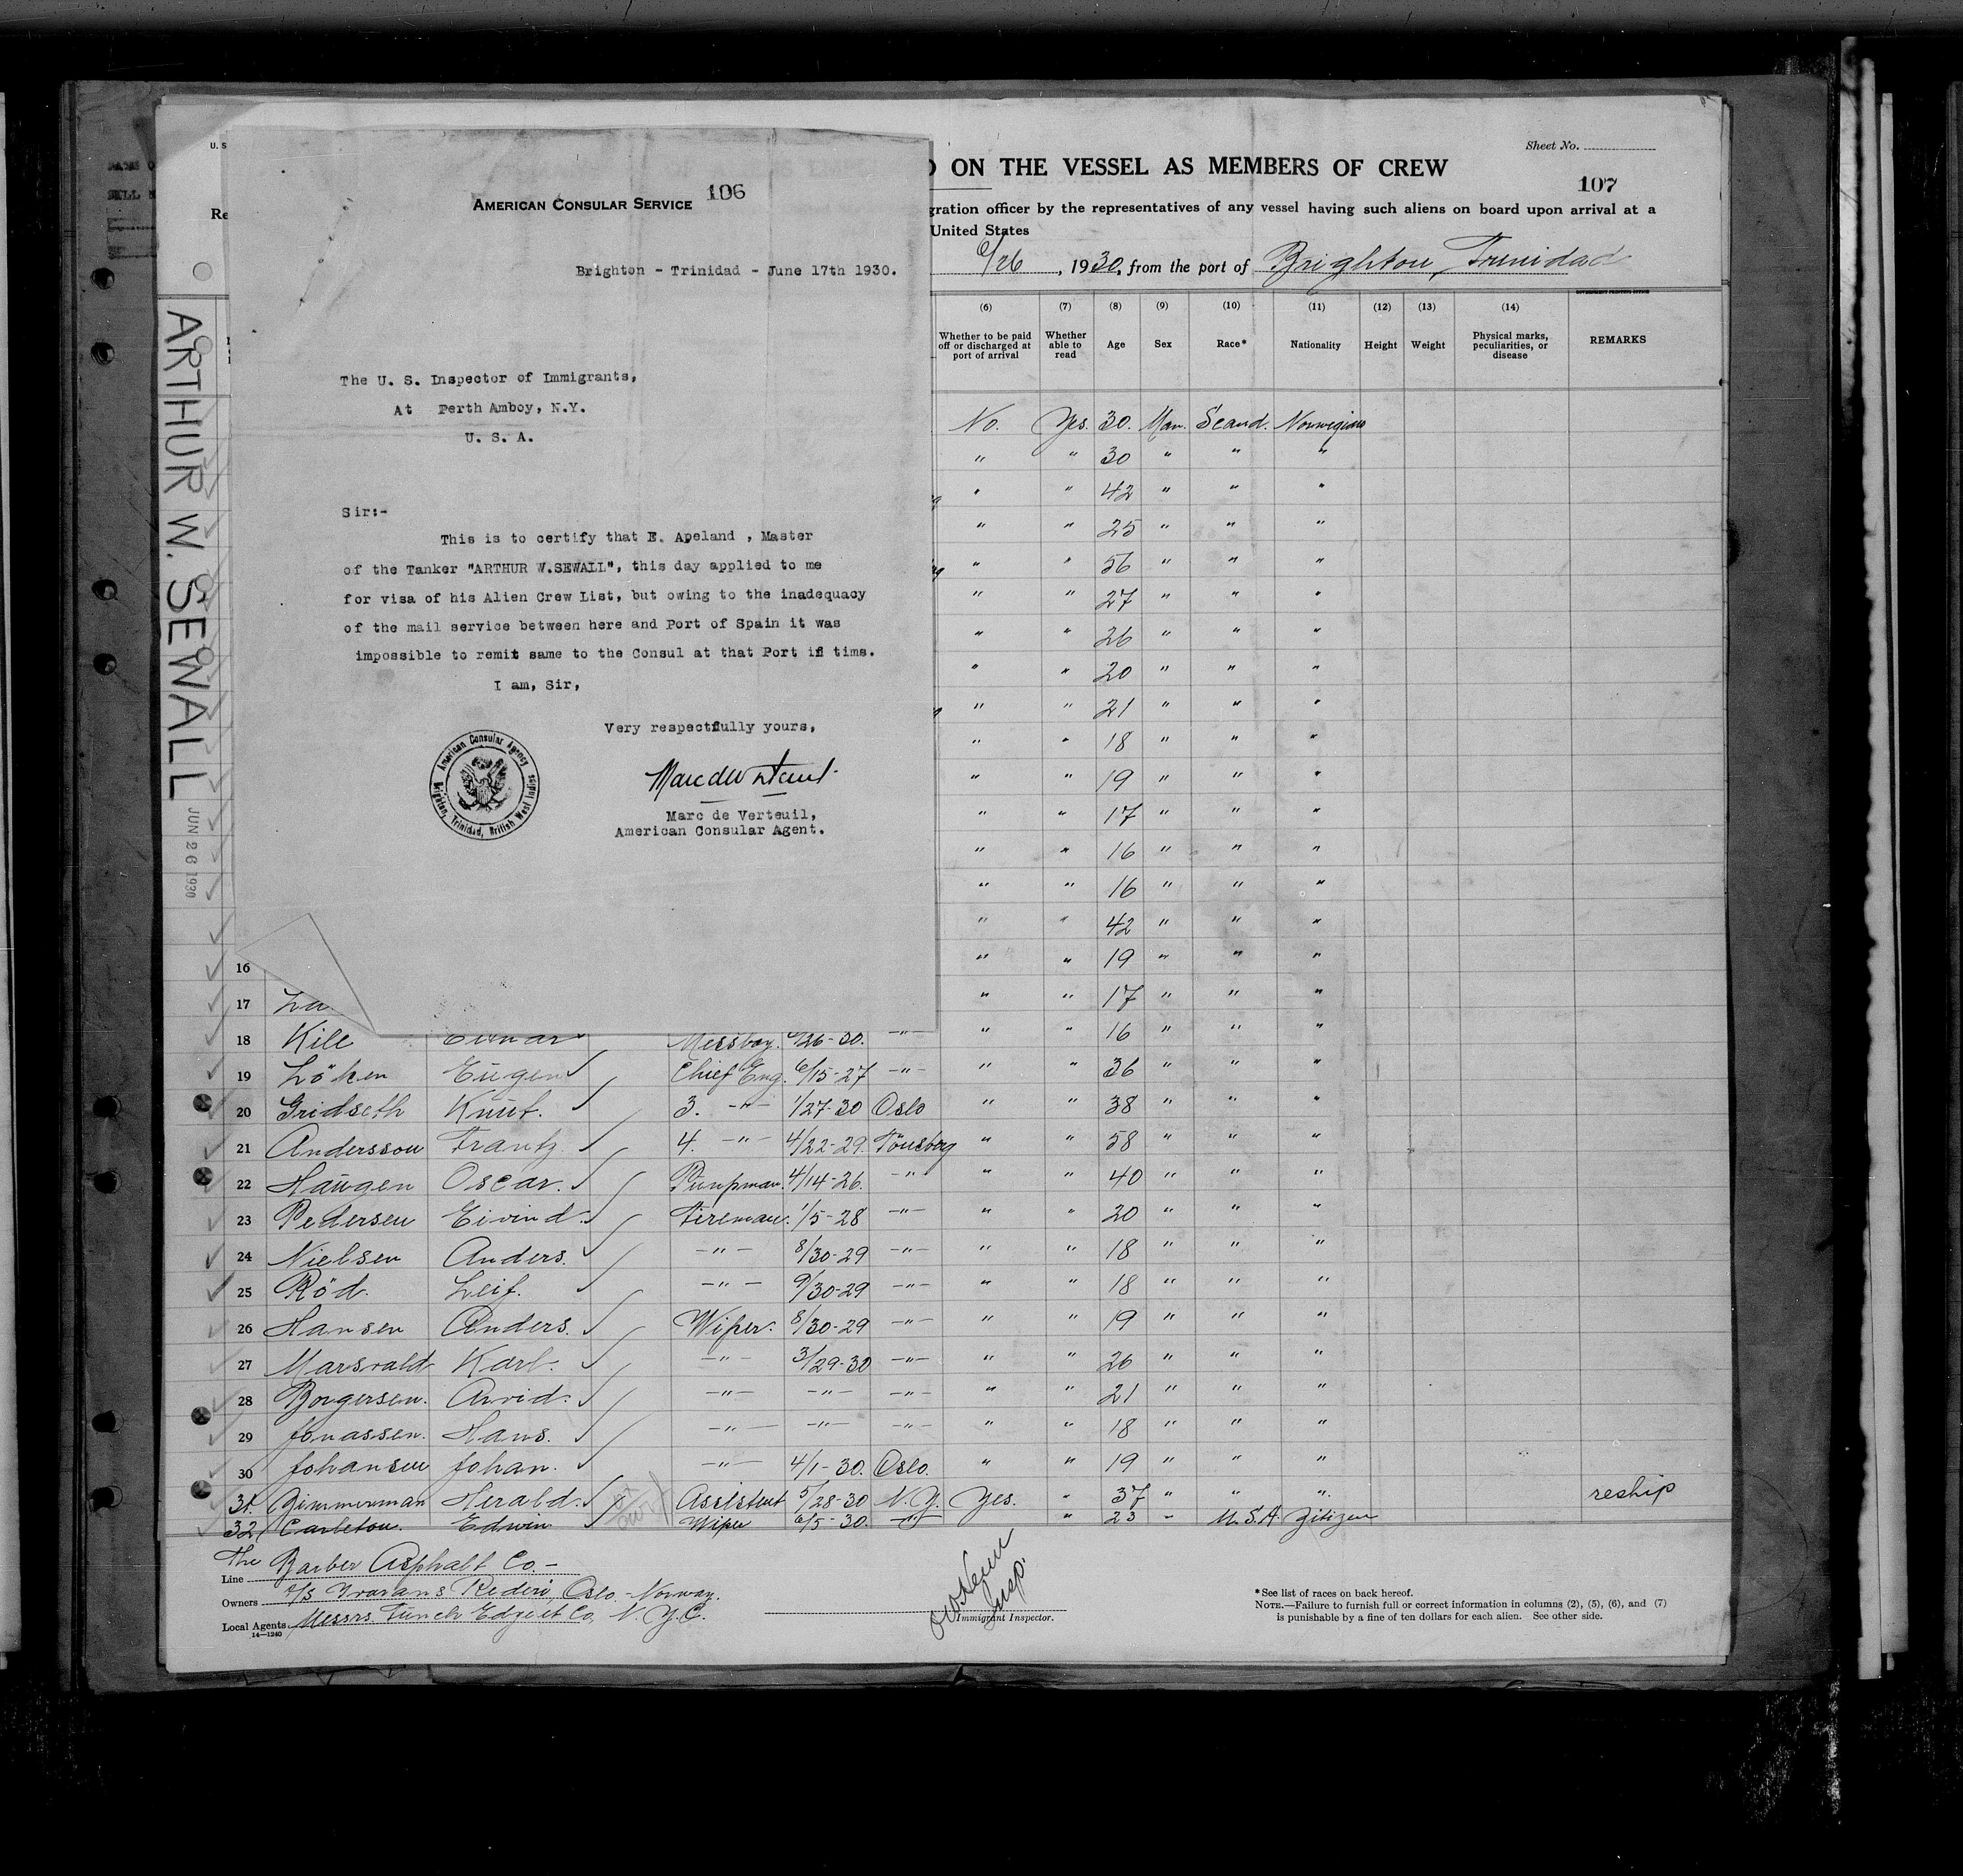 AMERICAN CONSULAR SERVICE
106
Brighton - Trinidad - June 17th 1930.
The U. S. Inspector of Immigrants,
At Perth Amboy, N.Y.
U. S. A.
Sir:-
This is to certify that E. Apeland , Master
of the Tanker "ARTHUR W.SEWALL", this day applied to me
for visa of his Alien Crew List, but owing to the inadequacy
of the mail service between here and Port of Spain it was
impossible to remit same to the Consul at that Port in tims.
I am, Sir,
Very respectfully yours,
Marc de Verteuil,
American Consular Agent.
American Consular Agency
Brighton, Trinidad, British West Indies
ARTHUR W. SEWALL
JUN 26 1930
U. S
Re
Sheet No.
ON THE VESSEL AS MEMBERS OF CREW
107
gration officer by the representatives of any vessel having such aliens on board upon arrival at a
United States
6/26, 1930, from the port of Brighton, Trinidad
(6) (7) (8) (9) (10) (11) (12) (13) (14)
Whether to be paid off or discharged at port of arrival
Whether able to read
Age
Sex
Race*
Nationality
Height
Weight
Physical marks, peculiarities, or disease
REMARKS
No. Yes. 30. Man. Scand. Norwegian
" " 30 " " "
" " 42 " " "
" " 25 " " "
" " 56 " " "
" " 27 " " "
" " 26 " " "
" " 20 " " "
" " 21 " " "
" " 18 " " "
" " 19 " " "
" " 17 " " "
" " 16 " " "
" " 16 " " "
" " 42 " " "
16 " " 19 " " "
17 La " " 17 " " "
18 Kile Messboy. /26-30. -"- " " 16 " " "
19 Löken Eugen Chief Eng. 6/15-27 -"- " " 36 " " "
20 Gridseth Knut. 3. -"- 1/27-30 Oslo " " 38 " " "
21 Andersson Frantz 4. -"- 4/22-29. Tönsberg " " 58 " " "
22 Haugen Oscar. Pumpman. 4/14-26. -"- " " 40 " " "
23 Pedersen Eivind. Fireman. 1/5-28 -"- " " 20 " " "
24 Nielsen Anders. -"- 8/30-29 -"- " " 18 " " "
25 Röd. Leif. -"- 9/30-29 -"- " " 18 " " "
26 Hansen Anders. Wiper. 8/30-29 -"- " " 19 " " "
27 Marsvald Karl. -"- 3/29-30 -"- " " 26 " " "
28 Borgersen. Arvid. -"- -"- -"- " " 21 " " "
29 Jonassen. Hans. -"- -"- -"- " " 18 " " "
30 Johansen Johan. -"- 4/1-30. Oslo. " " 19 " " "
31. Zimmerman Herald. Assistent 5/28-30 N.Y. Yes. " 37 " " " reship
32 Carleton. Edwin Wiper 6/5-30. -"- " 23 " U.S.A. Zitizen
Line The Barber Asphalt Co.-
Owners A/S Rederi, Oslo - Norway.
Local Agents Messrs Funch Edye et Co, N.Y.C.
14—1240
Insp.
Immigrant Inspector.
*See list of races on back hereof.
NOTE.—Failure to furnish full or correct information in columns (2), (5), (6), and (7)
is punishable by a fine of ten dollars for each alien. See other side.